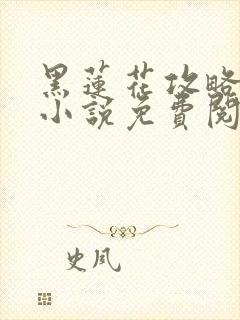 黑莲花攻略
小說免費閱
史凤